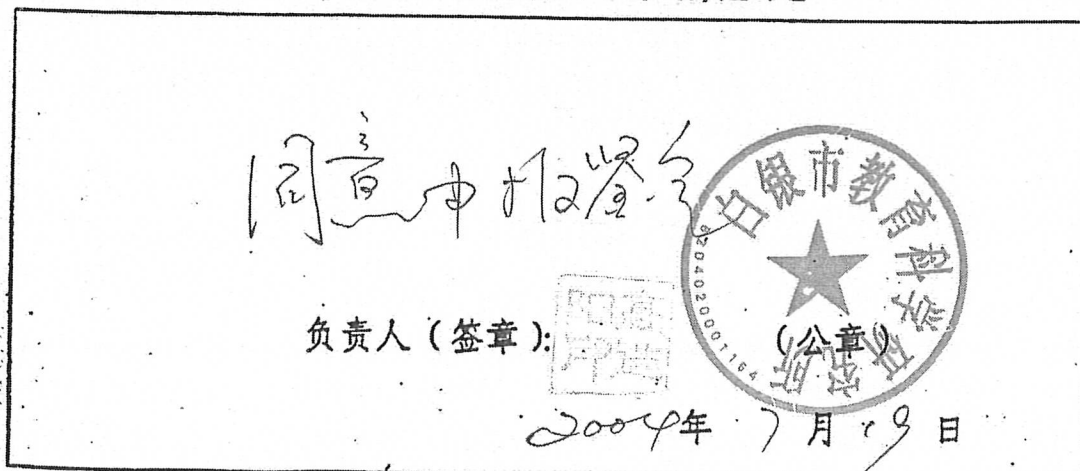 同意申报鉴定
白银市教育科学研究所
6204020001164
负责人（签章）：
（公章）
2004年7月19日